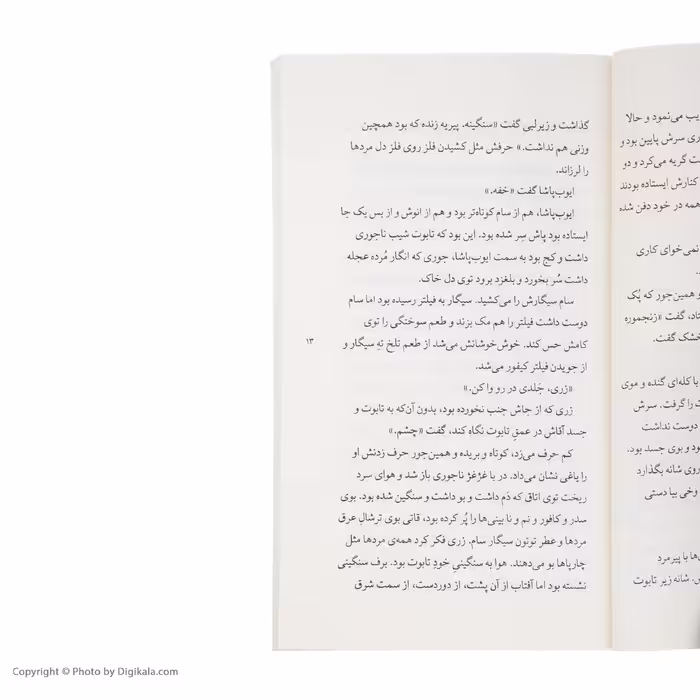 یب می‌نمود و حالا
ری سرش پایین بود و
ت گریه می‌کرد و دو
کنارش ایستاده بودند
همه در خود دفن شده
نمی‌خوای کاری
و همین‌جور که پُک
تاد، گفت «زنجموره
خشک گفت.
با کله‌ای گنده و موی
ت را گرفت. سرش
دوست نداشت
ود و بوی جسد بود.
روی شانه بگذارد
وخی بیا دستی
ها با پیرمرد
ش. شانه زیر تابوت
گذاشت و زیرلبی گفت «سنگینه. پیریه زنده که بود همچین
وزنی هم نداشت.» حرفش مثل کشیدن فلز روی فلز دل مردها
را لرزاند.
ایوب‌پاشا گفت «خفه.»
ایوب‌پاشا، هم از سام کوتاه‌تر بود و هم از انوش و از بس یک جا
ایستاده بود پاش سِر شده بود. این بود که تابوت شیب ناجوری
داشت و کج بود به سمت ایوب‌پاشا، جوری که انگار مُرده عجله
داشت سُر بخورد و بلغزد برود توی دل خاک.
سام سیگارش را می‌کشید. سیگار به فیلتر رسیده بود اما سام
دوست داشت فیلتر را هم مک بزند و طعم سوختگی را توی
کامش حس کند. خوش‌خوشانش می‌شد از طعم تلخ تهِ سیگار و
از جویدن فیلتر کیفور می‌شد.
«زری. جَلدی در رو وا کن.»
زری که از جاش جنب نخورده بود، بدون آن‌که به تابوت و
جسد آقاش در عمقِ تابوت نگاه کند، گفت «چشم.»
کم حرف می‌زد، کوتاه و بریده و همین‌جور حرف زدنش او
را یاغی نشان می‌داد. در با غژغژ ناجوری باز شد و هوای سرد
ریخت توی اتاق که دَم داشت و بو داشت و سنگین شده بود. بوی
سدر و کافور و نم و نا بینی‌ها را پُر کرده بود، قاتی بوی ترشالِ عرق
مردها و عطر توتون سیگار سام. زری فکر کرد همه‌ی مردها مثل
چارپاها بو می‌دهند. هوا به سنگینیِ خودِ تابوت بود. برف سنگینی
نشسته بود اما آفتاب از آن پشت، از دوردست، از سمت شرق
۱۳
Copyright © Photo by Digikala.com